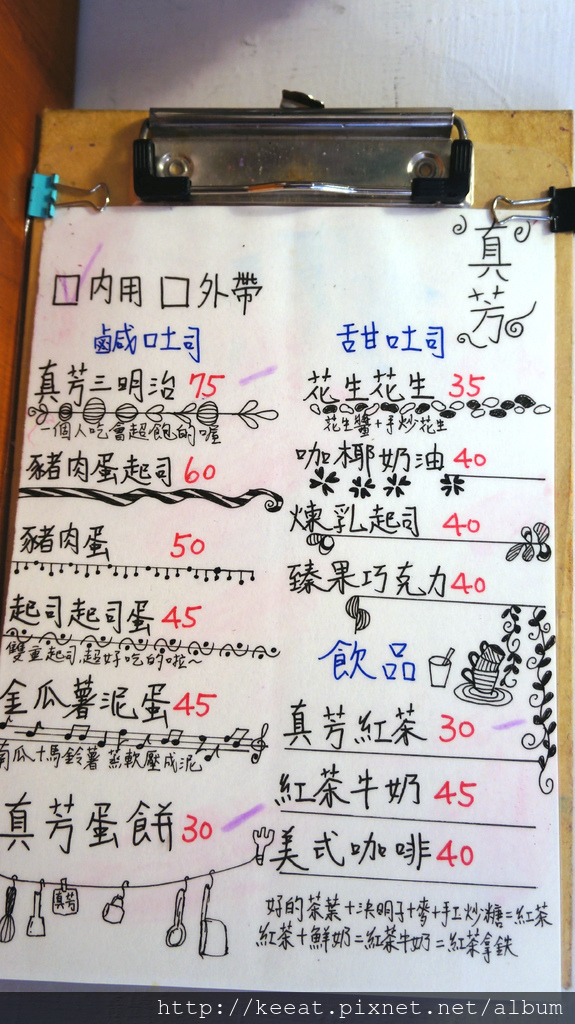 真芳
內用 外帶
鹹吐司
真芳三明治 75
一個人吃會超飽的喔
豬肉蛋起司 60
豬肉蛋 50
起司起司蛋 45
雙重起司,超好吃的啦~
金瓜薯泥蛋 45
南瓜+馬鈴薯 蒸軟壓成泥
真芳蛋餅 30
真芳
甜吐司
花生花生 35
花生醬+手炒花生
咖椰奶油 40
煉乳起司 40
臻果巧克力 40
飲品
真芳紅茶 30
紅茶牛奶 45
美式咖啡 40
好的茶葉+決明子+麥+手工炒糖=紅茶
紅茶+鮮奶=紅茶牛奶=紅茶拿鐵
http://keeat.pixnet.net/album